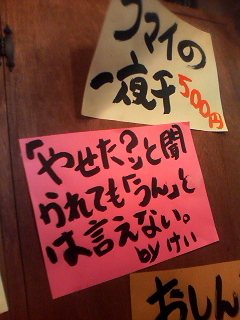 コマイの
一夜干
500円
「やせた?」と聞
かれても「うん」と
は言えない。
by けい
おしん